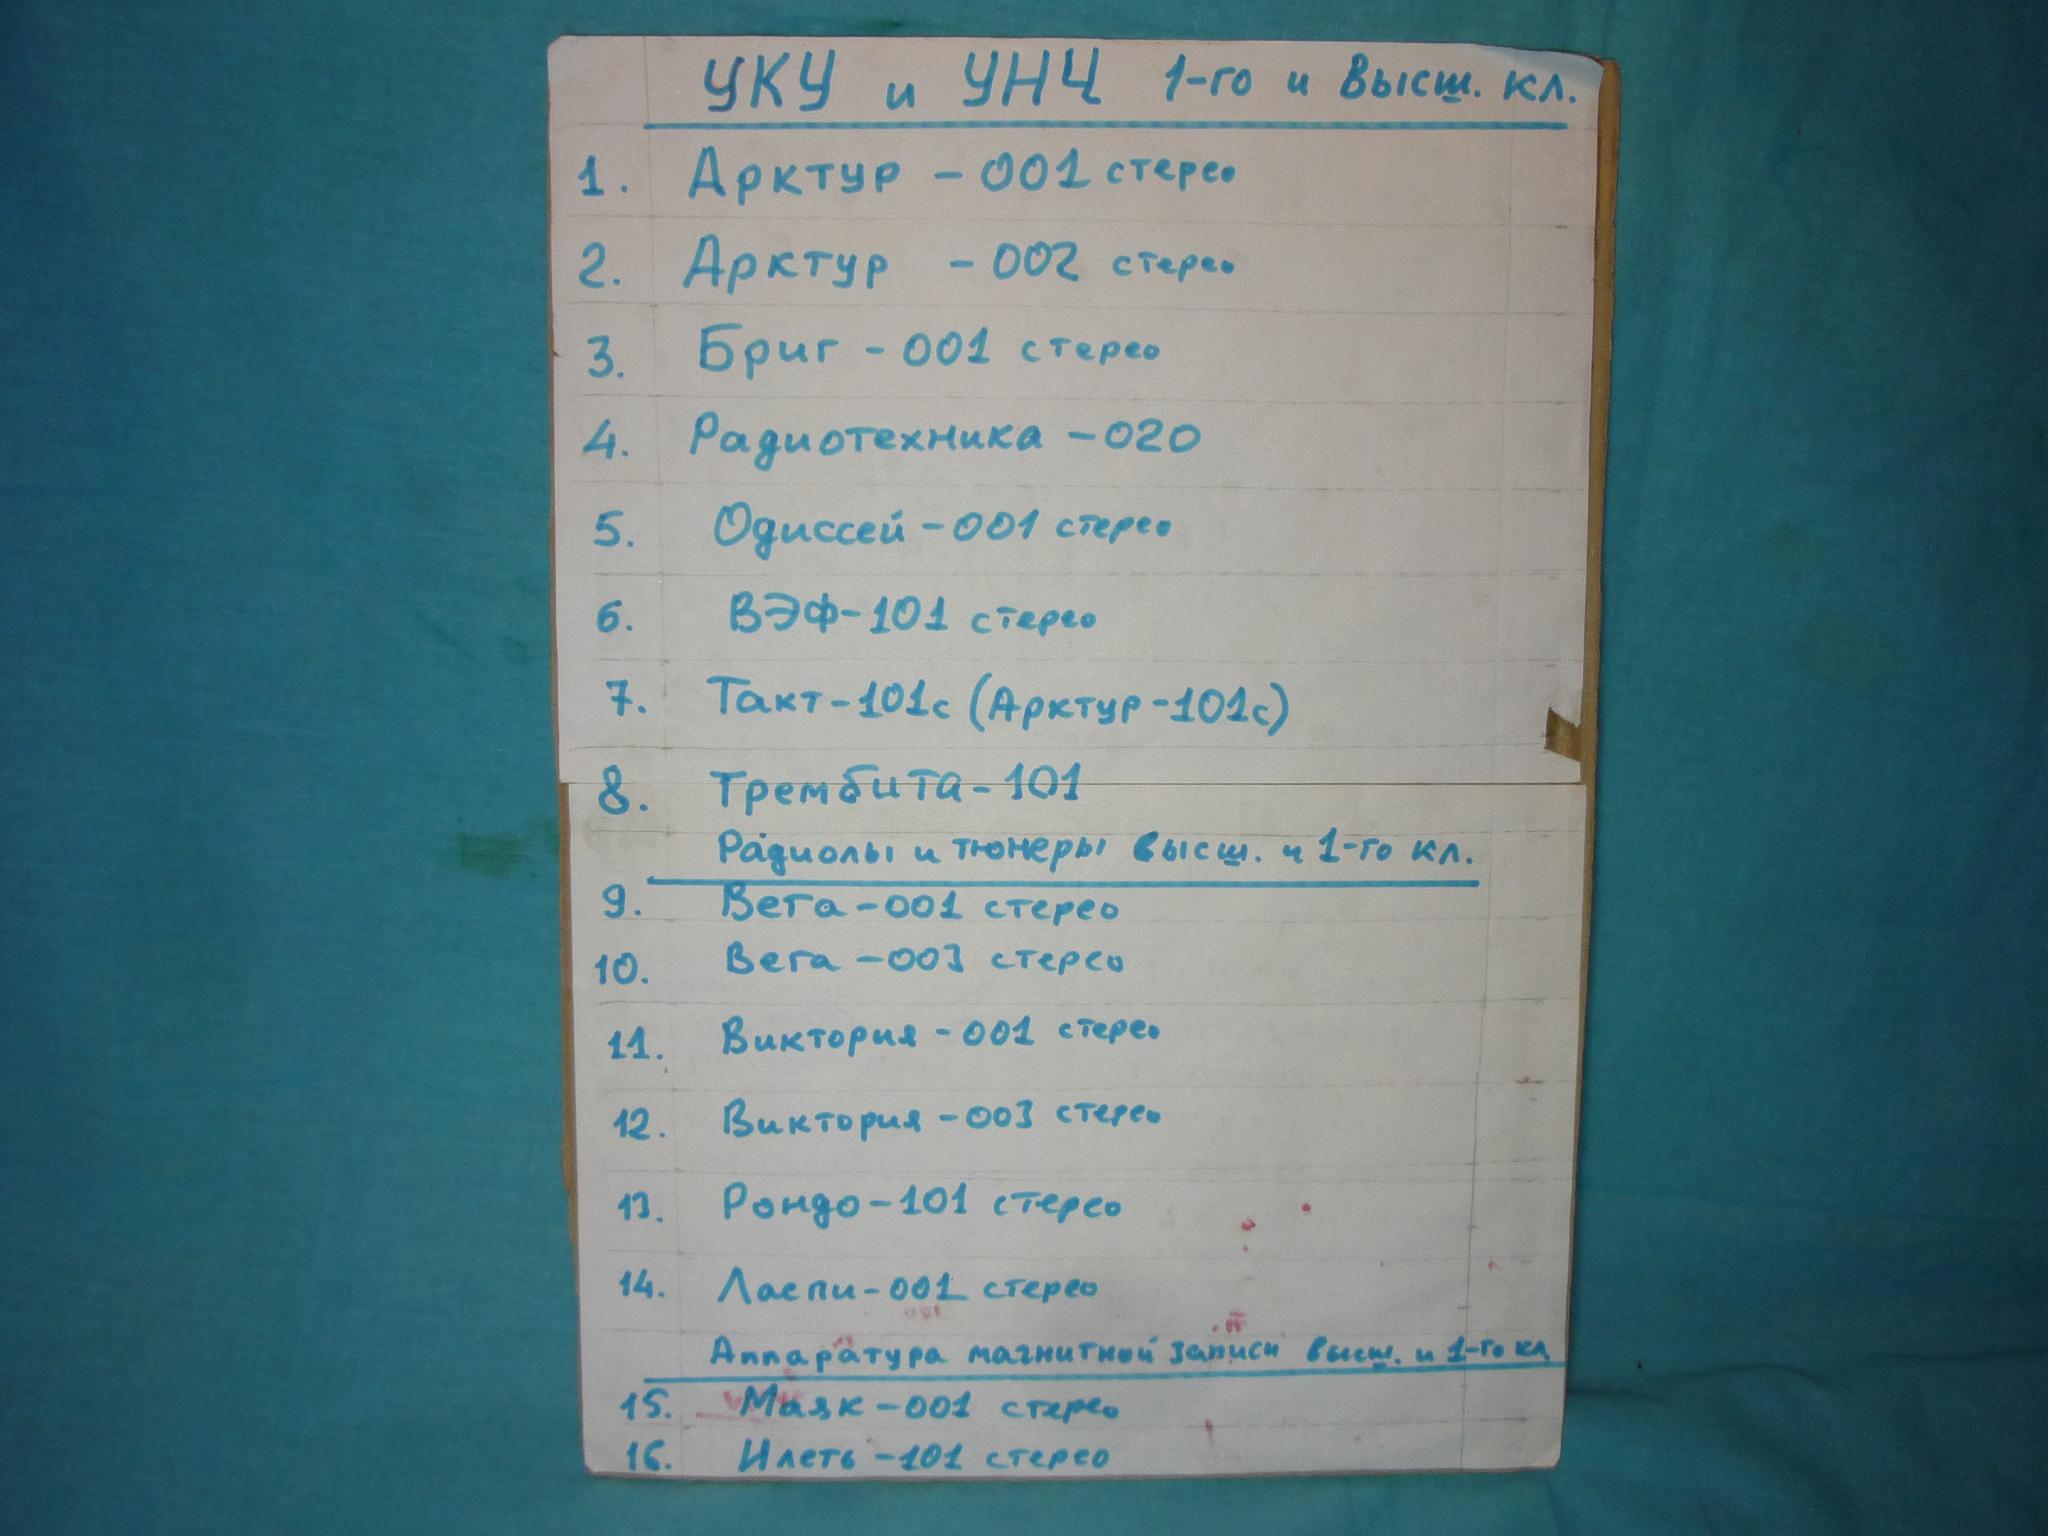 УКУ и УНЧ 1-го и Высш. кл.
1. Арктур - 001 стерео
2. Арктур - 002 стерео
3. Бриг - 001 стерео
4. Радиотехника - 020
5. Одиссей - 001 стерео
6. ВЭФ-101 стерео
7. Такт-101с (Арктур-101с)
8. Трембита-101
Радиолы и тюнеры высш. и 1-го кл.
9. Вега-001 стерео
10. Вега-003 стерео
11. Виктория-001 стерео
12. Виктория-003 стерео
13. Рондо-101 стерео
14. Ласпи-001 стерео
Аппаратура магнитной записи высш. и 1-го кл
15. Маяк-001 стерео
16. Илеть-101 стерео